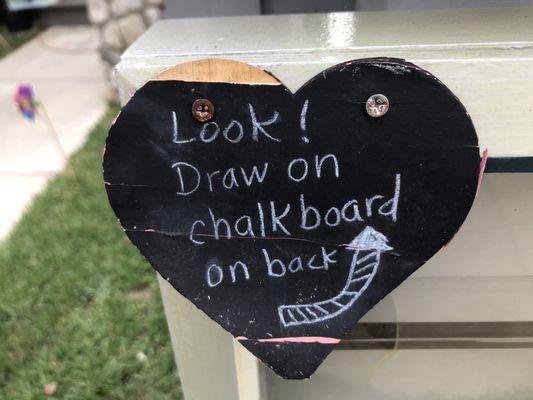 Look!
Draw on
chalkboard
on back